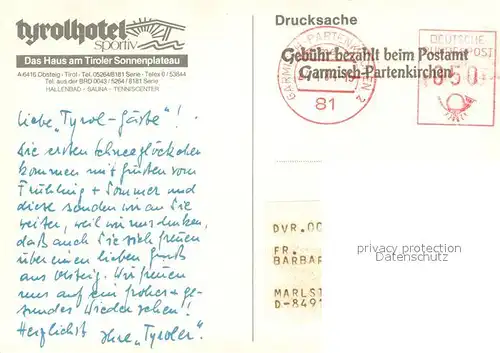 tyrolhotel
sportiv
Das Haus am Tiroler Sonnenplateau
A-6416 Obsteig - Tirol - Tel. 05264/8181 Serie - Telex 5/53844
Tel. aus der BRD 0043 / 5264 / 8181 Serie
HALLENBAD - SAUNA - TENNISCENTER
Liebe „Tyrol-Gäste"!
Die ersten Schneeglöckchen
kommen mit Grüßen vom
Frühling + Sommer und
diese senden wir an Sie
weiter, weil wir uns denken,
daß auch Sie sich freuen
über einen lieben Gruß
aus Obsteig. Wir freuen
uns auf ein frohes + ge-
sundes Wiedersehen!
Herzlichst Ihre „Tyroler".
Drucksache
GARMISCH-PARTENKIRCHEN 2
81
DEUTSCHE
BUNDESPOST
050
Gebühr bezahlt beim Postamt
Garmisch-Partenkirchen
DVR.00
FR.
BARBAR
MARLST
D-8491
privacy protection
Datenschutz